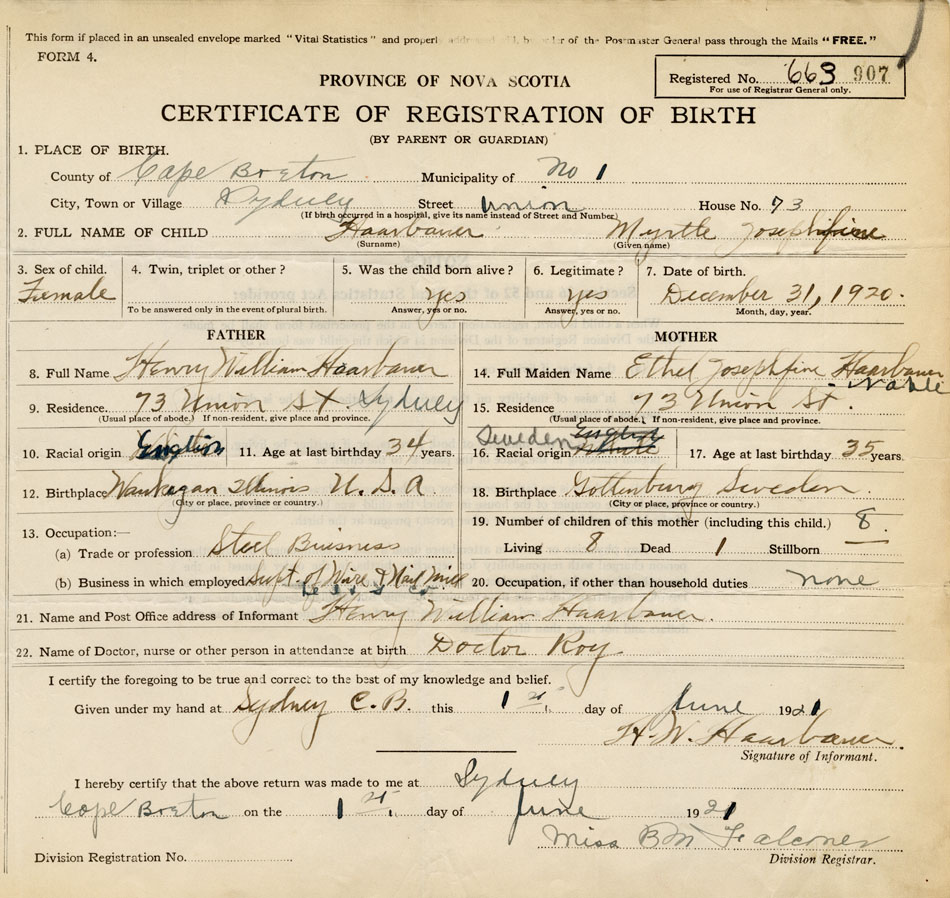 This form if placed in an unsealed envelope marked "Vital Statistics" and properl of the Postmaster General pass through the Mails "FREE."
FORM 4.
Registered No. 663 907
For use of Registrar General only.
PROVINCE OF NOVA SCOTIA
CERTIFICATE OF REGISTRATION OF BIRTH
(BY PARENT OR GUARDIAN)
1. PLACE OF BIRTH.
County of Cape Breton Municipality of No 1
City, Town or Village Sydney Street Union House No. 73
(If birth occurred in a hospital, give its name instead of Street and Number)
2. FULL NAME OF CHILD Haarbauer Myrtle Josephfine
(Surname) (Given name)
3. Sex of child. 4. Twin, triplet or other? 5. Was the child born alive? 6. Legitimate? 7. Date of birth.
Female yes yes December 31, 1920.
To be answered only in the event of plural birth. Answer, yes or no. Answer, yes or no. Month, day, year.
FATHER MOTHER
8. Full Name Henry William Haarbauer 14. Full Maiden Name Ethel Josephfine Haarbauer
9. Residence. 73 Union St. Sydney 15. Residence 73 Union St.
(Usual place of abode.) If non-resident, give place and province. (Usual place of abode.) If non-resident, give place and province.
10. Racial origin English 11. Age at last birthday 34 years. Sweden 16. Racial origin English 17. Age at last birthday 35 years.
12. Birthplace Waukegan Illinois U.S.A 18. Birthplace Gottenburg Sweden.
(City or place, province or country.) (City or place, province or country.)
13. Occupation:— 19. Number of children of this mother (including this child.) 8
(a) Trade or profession Steel Buisness Living 8 Dead 1 Stillborn
(b) Business in which employed Supt. of Wire & Nail Mill 20. Occupation, if other than household duties none
21. Name and Post Office address of Informant Henry William Haarbauer.
22. Name of Doctor, nurse or other person in attendance at birth Doctor Roy
I certify the foregoing to be true and correct to the best of my knowledge and belief.
Given under my hand at Sydney C.B. this 1st day of June 1921
H. W. Haarbauer.
Signature of Informant.
I hereby certify that the above return was made to me at Sydney
Cape Breton on the 1st day of June 1921
Miss B M Falconer
Division Registration No. Division Registrar.